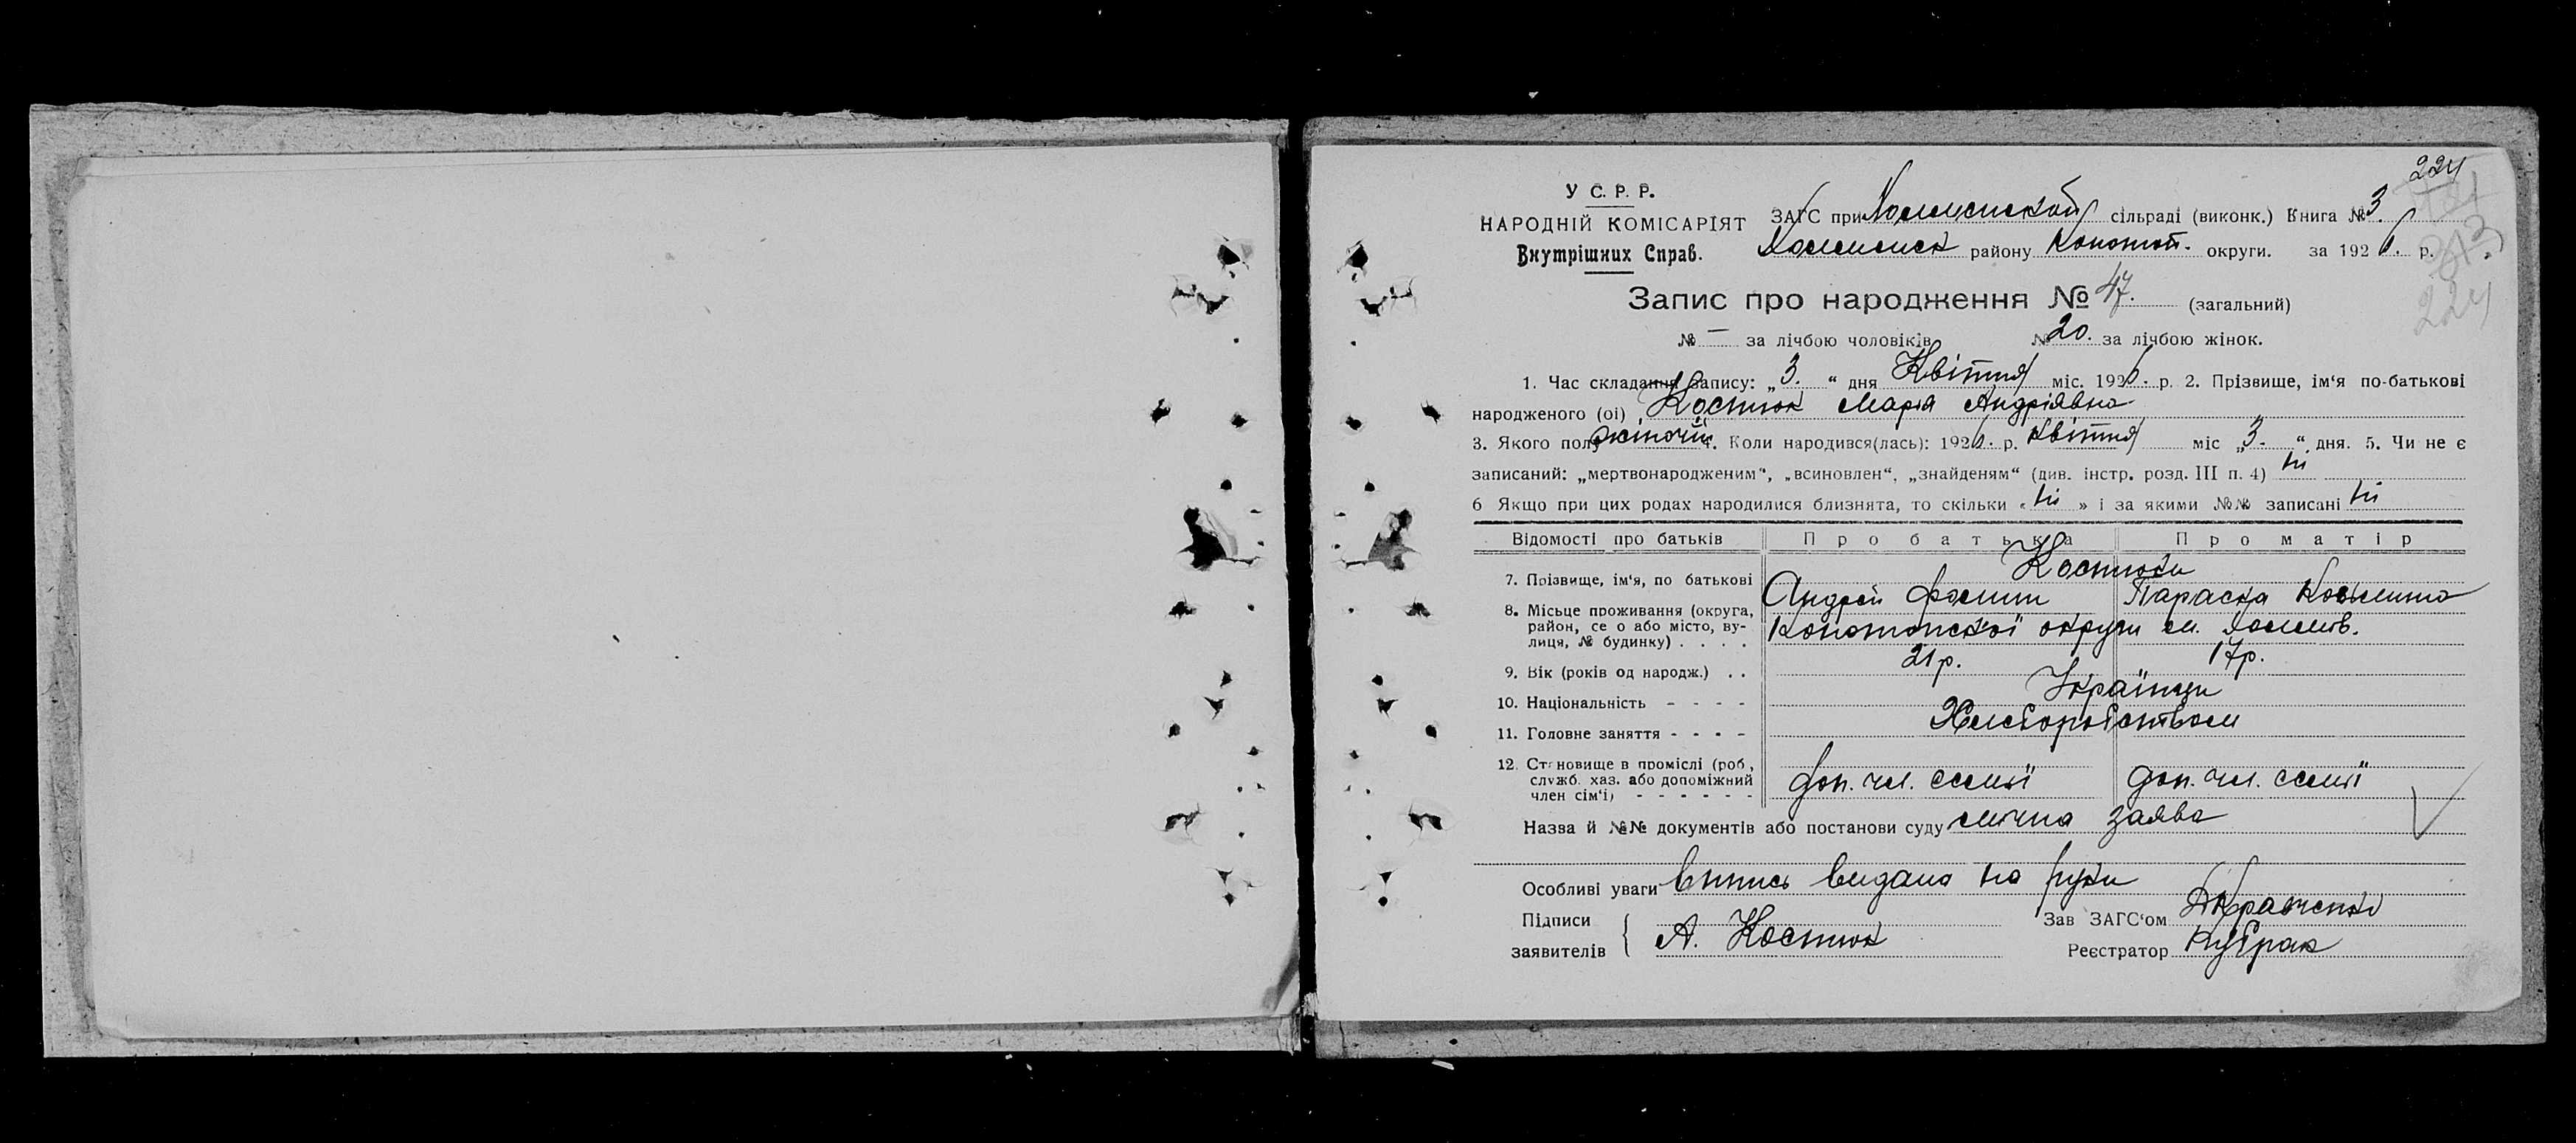 224
У С. Р. Р.
НАРОДНІЙ КОМІСАРІЯТ
Внутрішних Справ.
ЗАГС при Хоминской сільраді (виконк.) Книга № 3.
району Конотоп. округи. за 1926 р.
224
Запис про народження № 47. (загальний)
№ — за лічбою чоловіків № 20. за лічбою жінок.
1. Час складання запису: „ 3. “ дня Квітня міс. 1926. р. 2. Прізвище, ім‘я по-батькові
народженого (ої) Костюк Марія Андріявна
3. Якого полу жіночій. Коли народився(лась): 1926. р. Квітня міс „ 3. “ дня. 5. Чи не є
записаний: „мертвонародженим“, „всиновлен“, „знайденям“ (див. інстр. розд. III п. 4) ні
6 Якщо при цих родах народилися близнята, то скільки « ні » і за якими №№ записані ні
Відомості про батьків Про батька Про матір
7. Прізвище, ім‘я, по батькові Костюки
Андрей Фомич Параска Козьмина
8. Місьце проживання (округа, район, се о або місто, вулиця, № будинку) . . . . Конотопської округи м.
9. Вік (років од народж.) . . 21 р. 17 р.
10. Національність - - - - Українци
11. Головне заняття - - - - Хлеборобством
12. Становище в проміслі (роб., служб. хаз. або допоміжний член сім‘ї) - - - - - - доп. чл. семьї доп. чл. семьї
Назва й №№ документів або постанови суду заява
Особливі уваги выпись видана на руки
Підписи
заявителів А. Костюк
Зав ЗАГС‘ом Кравченко
Реєстратор Кубрак